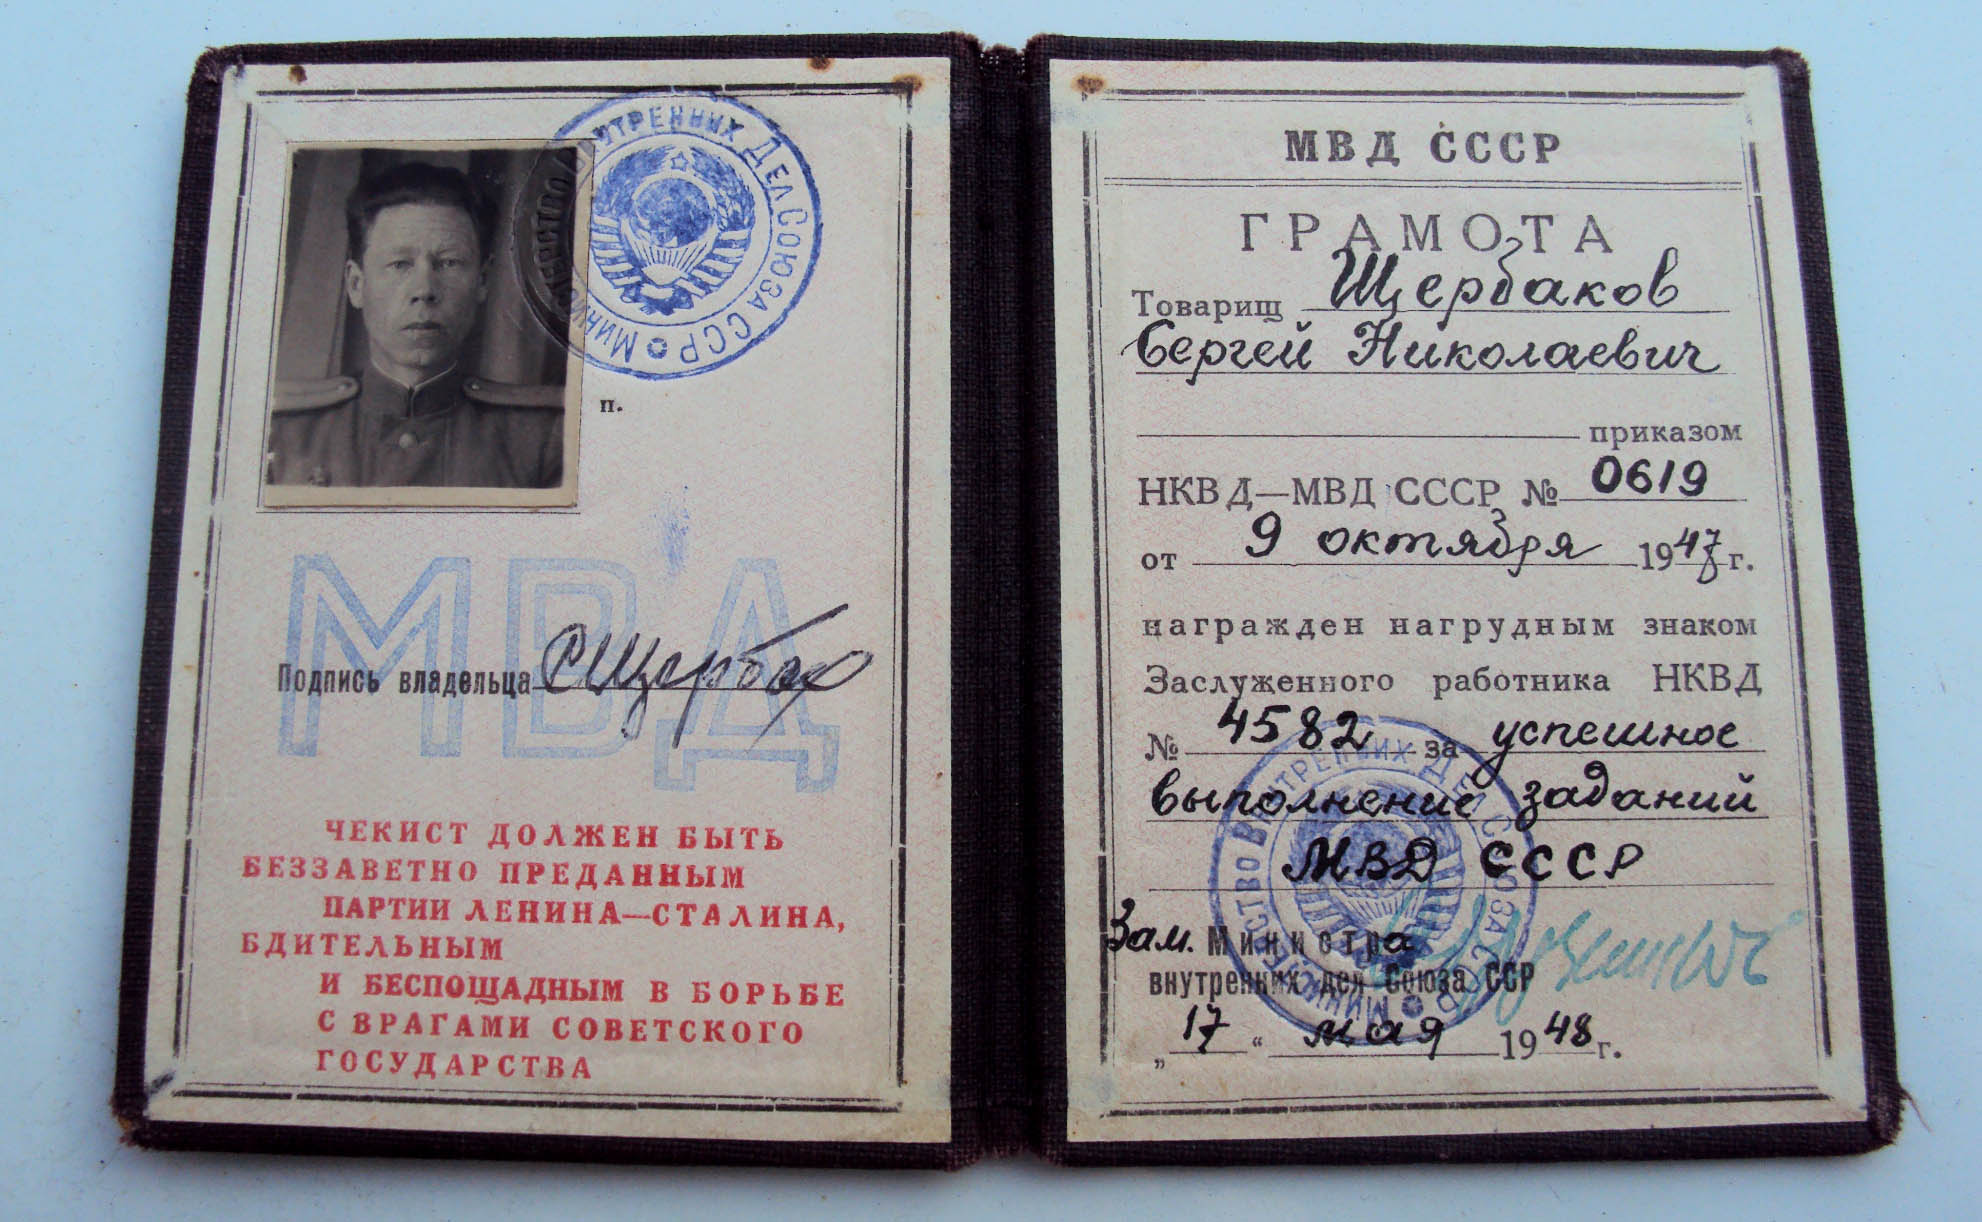 МИНИСТЕРСТВО ВНУТРЕННИХ ДЕЛ СОЮЗА ССР
п.
МВД
Подпись владельца С Щербак
ЧЕКИСТ ДОЛЖЕН БЫТЬ
БЕЗЗАВЕТНО ПРЕДАННЫМ
ПАРТИИ ЛЕНИНА—СТАЛИНА,
БДИТЕЛЬНЫМ
И БЕСПОЩАДНЫМ В БОРЬБЕ
С ВРАГАМИ СОВЕТСКОГО
ГОСУДАРСТВА
МВД СССР
ГРАМОТА
Товарищ Щербаков
Сергей Николаевич
приказом
НКВД—МВД СССР № 0619
от 9 октября 1947 г.
награжден нагрудным знаком
Заслуженного работника НКВД
№ 4582 за успешное
выполнение заданий
МВД СССР
Зам. Министра
внутренних дел Союза ССР
„17“ мая 1948 г.
МИНИСТЕРСТВО ВНУТРЕННИХ ДЕЛ СОЮЗА ССР